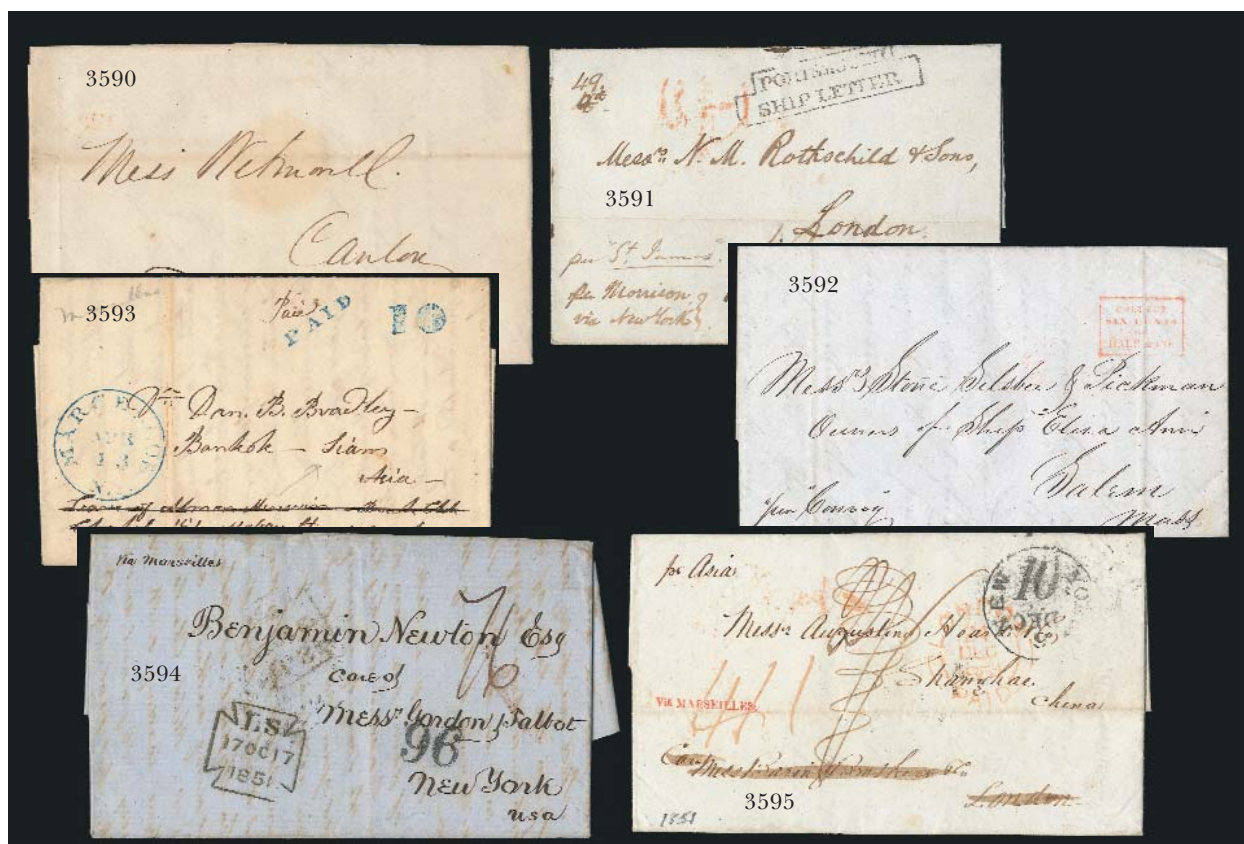 3590
Mess Wetmore
Canton
49
PORTSMOUTH
SHIP LETTER
Messrs. N. M. Rothschild & Sons,
3591
London.
per "St. James".
per Morrison
via New York
3593
Paid
PAID
10
APR
13
Dan. B. Bradley -
Bankok - Siam
Asia -
3592
Messrs Stone Silsbee & Pickman
Owners of Ship Eliza Ann
Salem
Mass
per Convoy
via Marseilles
Benjamin Newton Esq
3594
Care of
Messrs Gordon & Talbot
96
New York
USA
LS
17OC17
1851
pr Asia
NEW YORK
10
DEC
Messrs Augustine Heard & Co
Shanghae.
China
VIA MARSEILLES.
London
3595